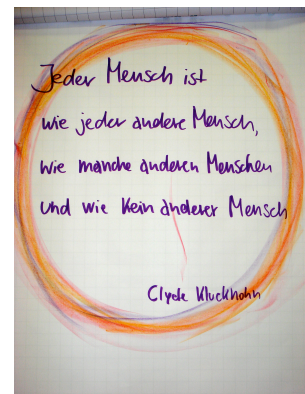 Jeder Mensch ist
wie jeder andere Mensch,
wie manche anderen Menschen
und wie kein anderer Mensch
Clyde Kluckhohn